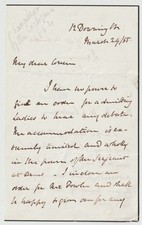 12 Downing St
March 24/55
My dear
I have no power to
give an order for admitting
ladies to hear any debate.
The accommodation is ex-
tremely limited and wholly
in the power of the Sergeant
at arms. I inclose an
order for Mr and shall
be happy to give one for any